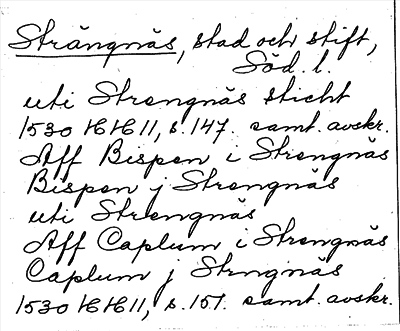 Strängnäs, stad och stift,
Söd. l.
uti Strengnäs sticht
1530 HH 11, s. 147. samt. avskr.
Aff Bispen i Strengnäs
Bispen j Strengnäs
uti Strengnäs
Aff Caplum i Strengnäs
Caplum j Strngnäs
1530 HH 11, s. 151. samt. avskr.